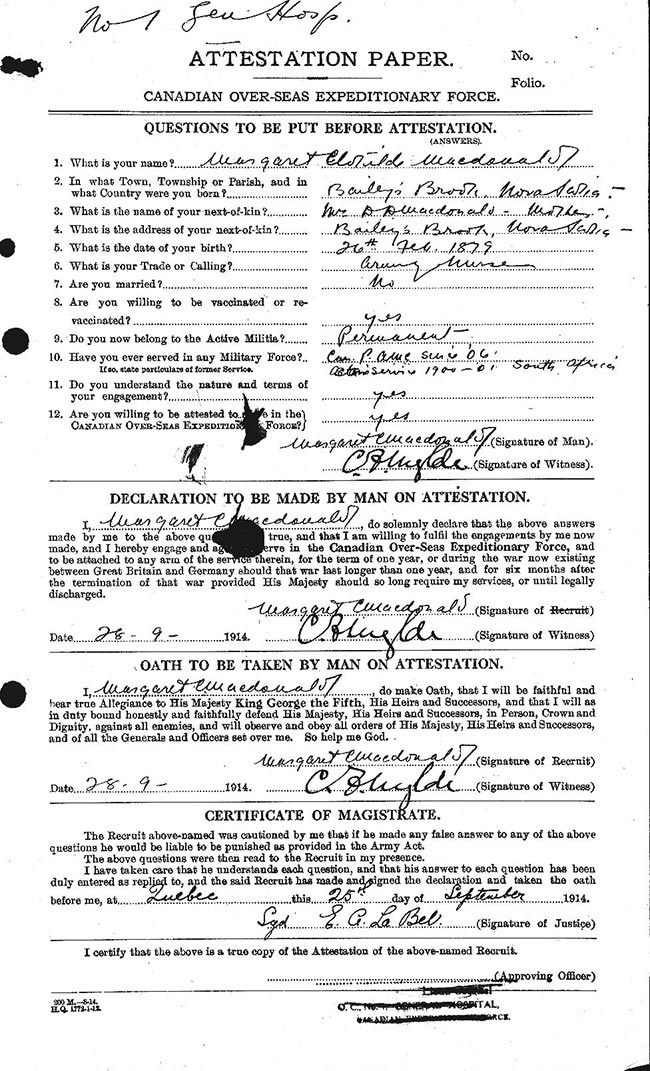 No 1 Gen Hosp.
ATTESTATION PAPER.
No.
Folio.
CANADIAN OVER-SEAS EXPEDITIONARY FORCE.
QUESTIONS TO BE PUT BEFORE ATTESTATION.
(ANSWERS).
1. What is your name? Margaret Clotilde Macdonald
2. In what Town, Township or Parish, and in
what Country were you born? Bailey's Brook, Nova Scotia -
3. What is the name of your next-of-kin? Mrs D D Macdonald - Mother -
4. What is the address of your next-of-kin? Bailey's Brook, Nova Scotia -
5. What is the date of your birth? 26th Feb. 1879
6. What is your Trade or Calling? Army Nurse
7. Are you married? No
8. Are you willing to be vaccinated or re-
vaccinated? yes
9. Do you now belong to the Active Militia? Permanent
10. Have you ever served in any Military Force? Can. P. AMC since '06.
If so, state particulars of former Service. service 1900-01. South Africa
11. Do you understand the nature and terms of
your engagement? yes
12. Are you willing to be attested to in the} yes
CANADIAN OVER-SEAS FORCE?}
Margaret C Macdonald (Signature of Man).
(Signature of Witness).
DECLARATION TO BE MADE BY MAN ON ATTESTATION.
I, Margaret C Macdonald, do solemnly declare that the above answers
made by me to the above true, and that I am willing to fulfil the engagements by me now
made, and I hereby engage and serve in the Canadian Over-Seas Expeditionary Force, and
to be attached to any arm of the service therein, for the term of one year, or during the war now existing
between Great Britain and Germany should that war last longer than one year, and for six months after
the termination of that war provided His Majesty should so long require my services, or until legally
discharged.
Margaret C Macdonald (Signature of Recruit)
Date 28-9- 1914. (Signature of Witness)
OATH TO BE TAKEN BY MAN ON ATTESTATION.
I, Margaret C Macdonald, do make Oath, that I will be faithful and
bear true Allegiance to His Majesty King George the Fifth, His Heirs and Successors, and that I will as
in duty bound honestly and faithfully defend His Majesty, His Heirs and Successors, in Person, Crown and
Dignity, against all enemies, and will observe and obey all orders of His Majesty, His Heirs and Successors,
and of all the Generals and Officers set over me. So help me God.
Margaret C Macdonald (Signature of Recruit)
Date 28-9- 1914. (Signature of Witness)
CERTIFICATE OF MAGISTRATE.
The Recruit above-named was cautioned by me that if he made any false answer to any of the above
questions he would be liable to be punished as provided in the Army Act.
The above questions were then read to the Recruit in my presence.
I have taken care that he understands each question, and that his answer to each question has been
duly entered as replied to, and the said Recruit has made and signed the declaration and taken the oath
before me, at Quebec this 25th day of September 1914.
Sgd E. A. La Bell (Signature of Justice)
I certify that the above is a true copy of the Attestation of the above-named Recruit.
(Approving Officer)
200 M.—8-14.
H.Q. 1772-1-12.
O. C., No. 1 GENERAL HOSPITAL,
CANADIAN EXPEDITIONARY FORCE.